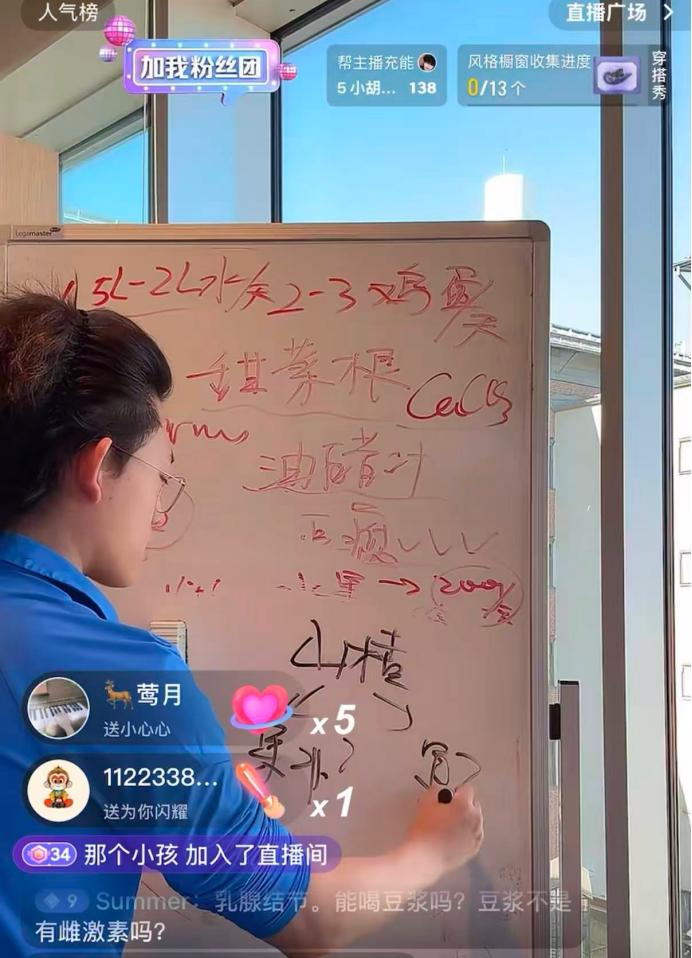 人气榜
直播广场 >
加我粉丝团
帮主播充能
5 小胡... 138
风格橱窗收集进度
0/13 个
穿搭秀
Legamaster
5L-2L水/天 2-3 鸡蛋/天
甜菜根
油醋汁
→ 200g/天
山楂
莺月
送小心心
x5
1122338...
送为你闪耀
x1
34 那个小孩 加入了直播间
9 Summer：乳腺结节。能喝豆浆吗？豆浆不是有雌激素吗？